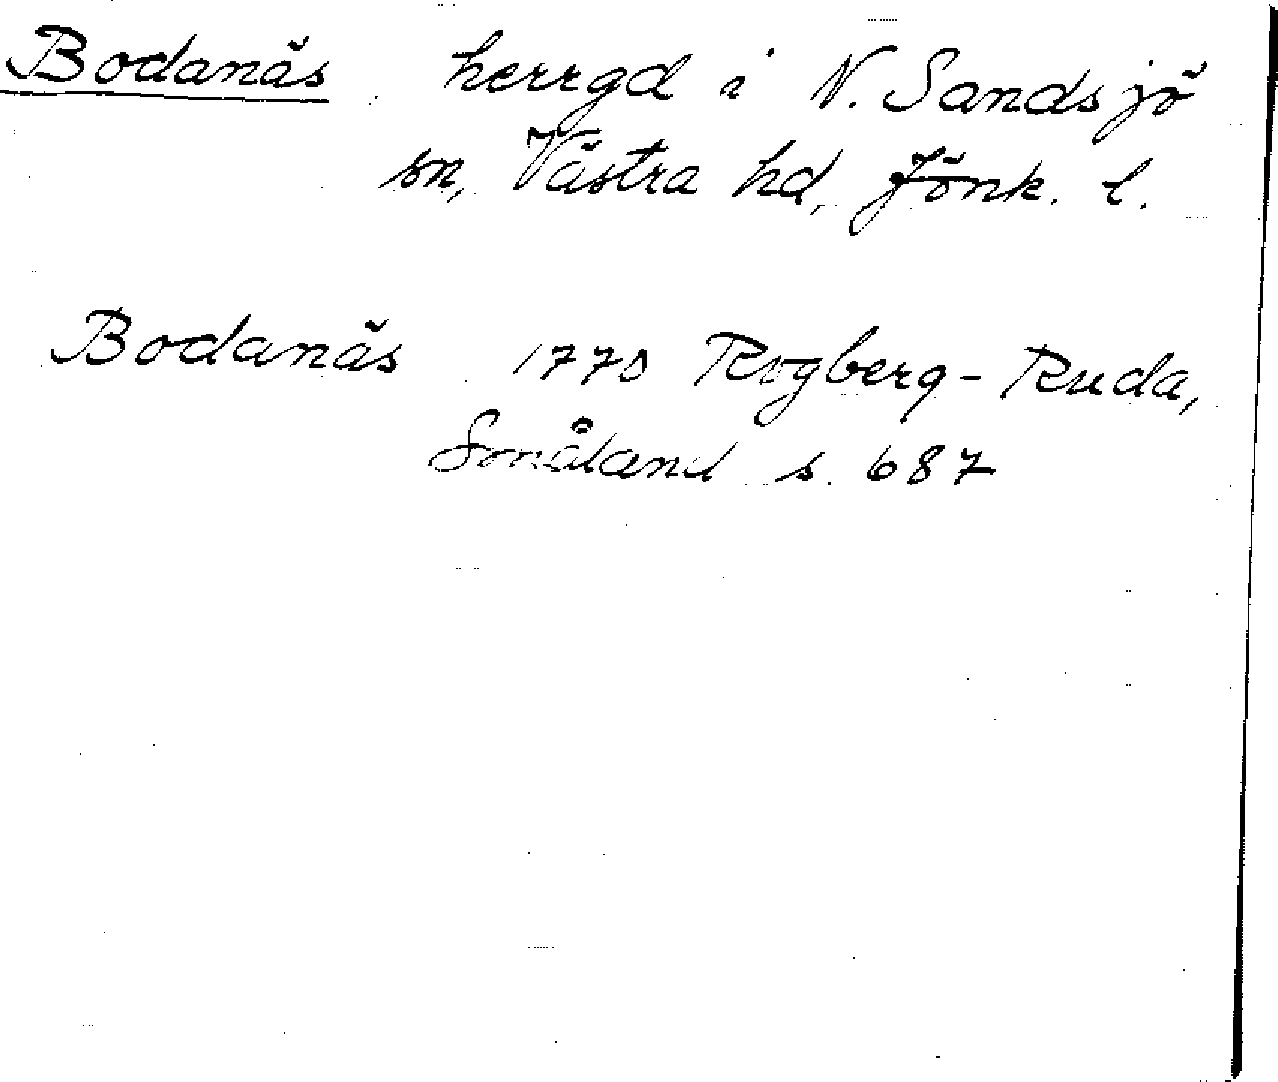 Bodanäs herrgd i N. Sandsjö
sn, Västra hd, Jönk. l.
Bodanäs 1770 Rogberg-Ruda,
Småland s. 687